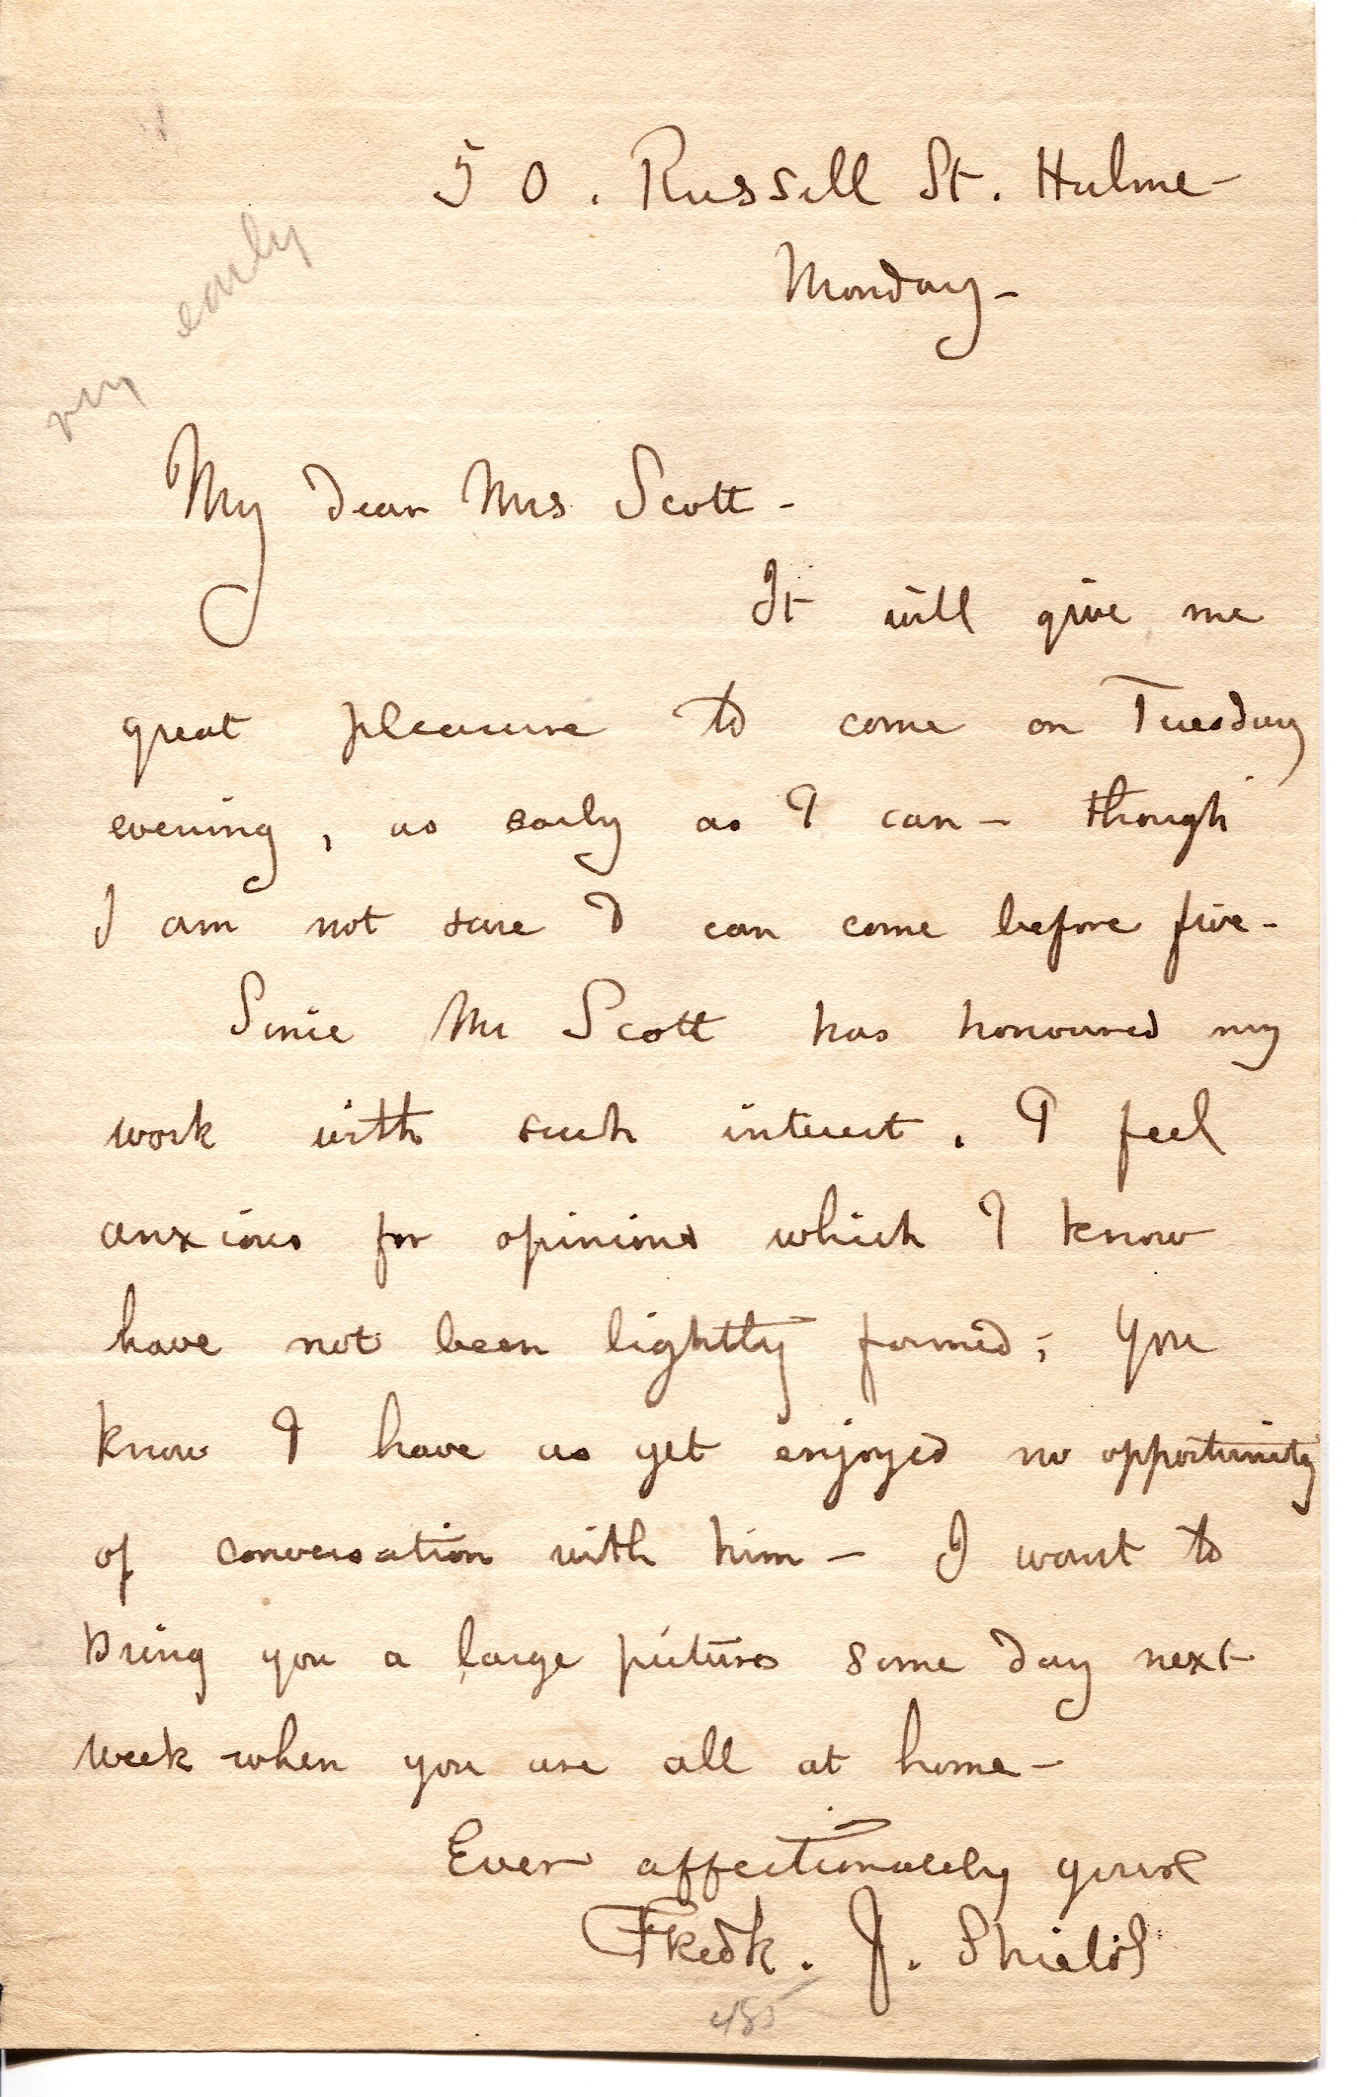 50. Russell St. Hulme-
Monday-
very early
My dear Mrs Scott-
It will give me
great pleasure to come on Tuesday
evening, as early as I can - though
I am not sure I can come before five-
Since Mr Scott has honoured my
work with such interest. I feel
anxious for opinions which I know
have not been lightly formed; you
know I have as yet enjoyed no opportunity
of conversation with him - I want to
bring you a large pictures some day next
week when you are all at home-
Ever affectionately yours
Fredk. J. Shields
485